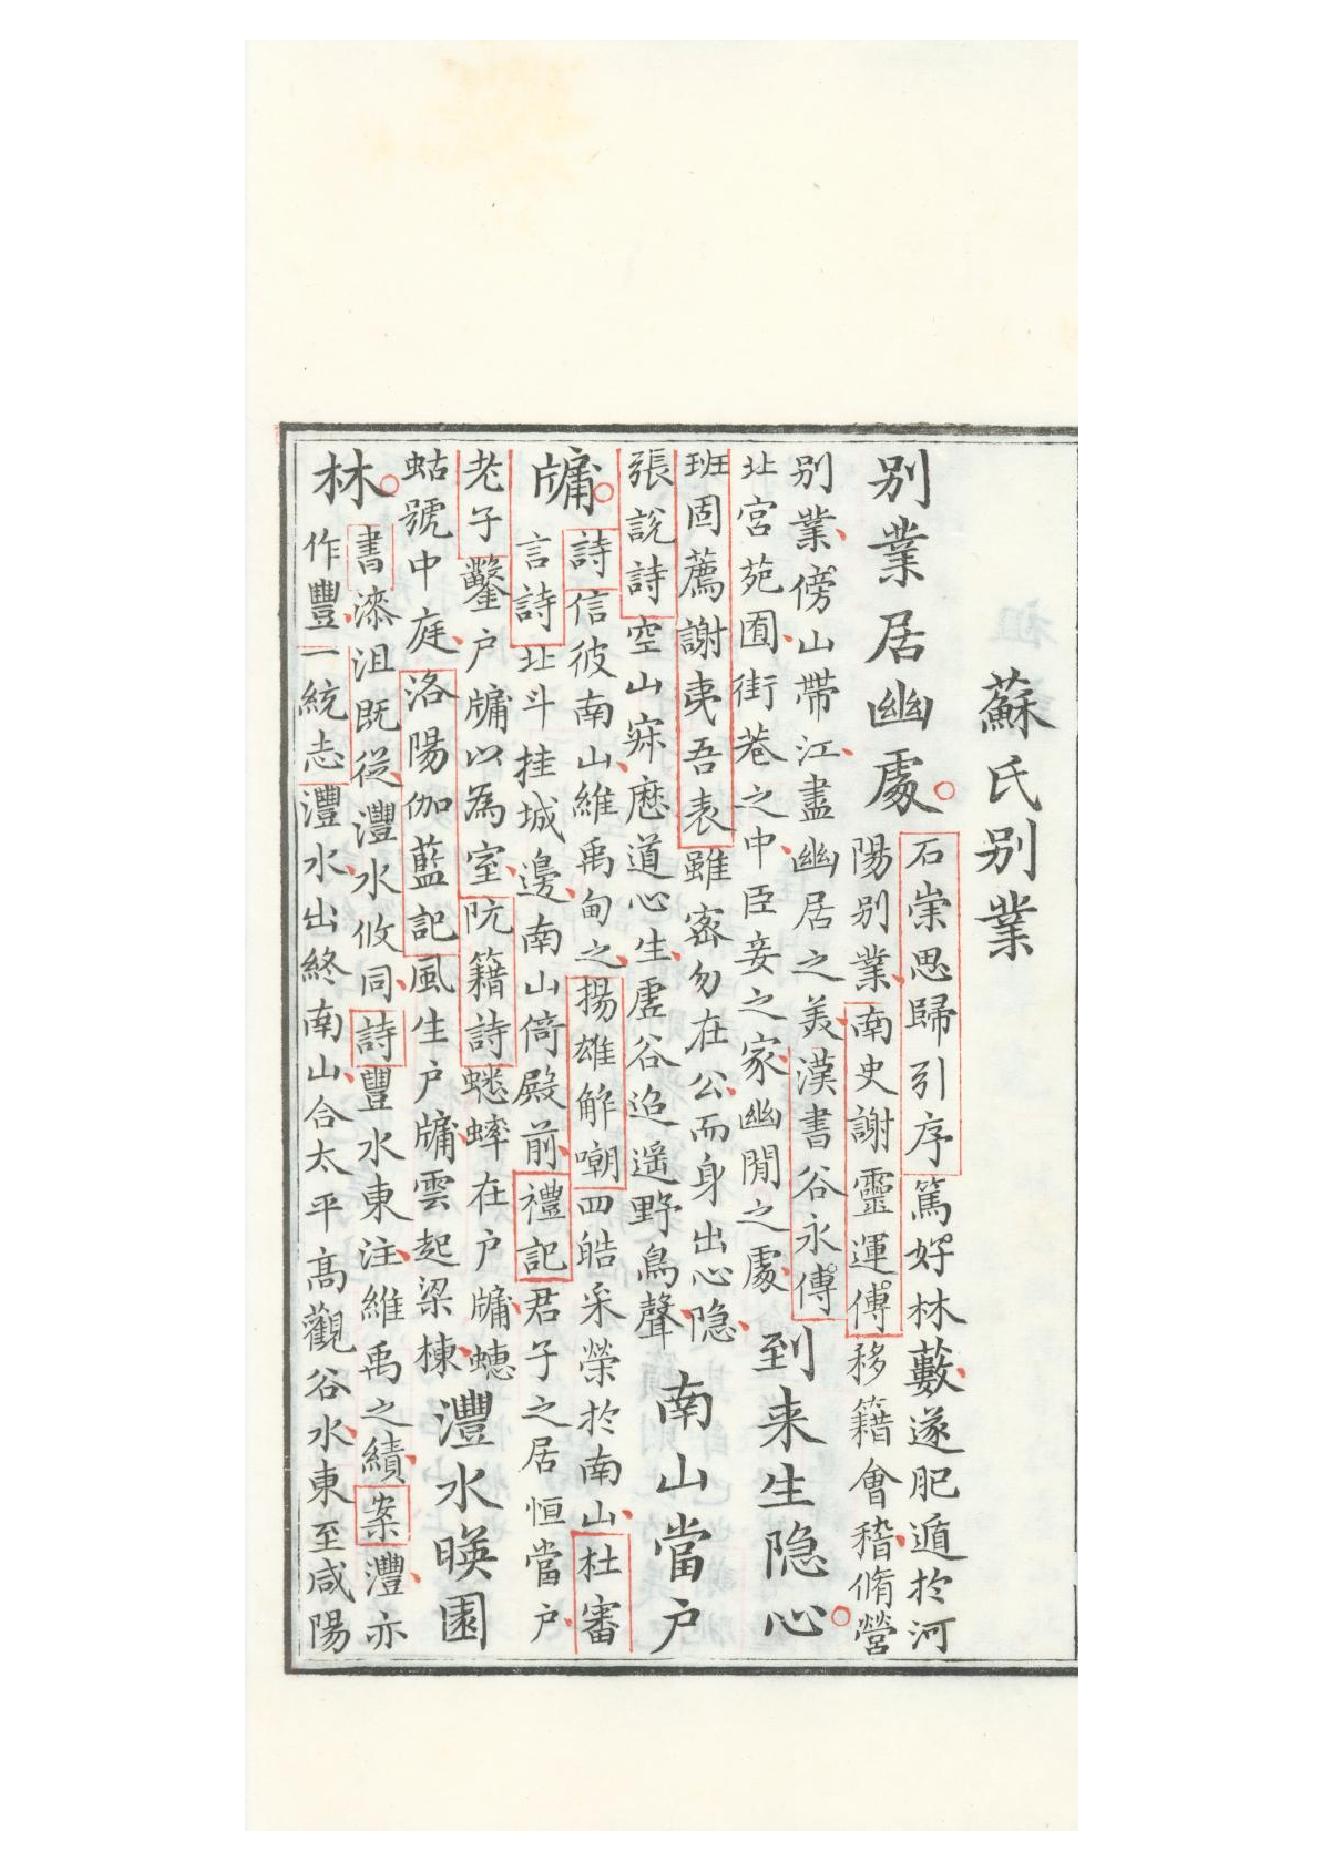 蘇氏别業
别業居幽處
石崇思歸引序篤好林藪遂肥遁於河
陽别業南史謝靈運傳移籍會稽脩營
别業傍山帶江盡幽居之美漢書谷永傳
北宮苑囿街巷之中臣妾之家幽閒之處
到来生隐心
班固薦謝夷吾表雖宻勿在公而身出心隐
張說詩空山寂厯道心生虛谷迢遥野鳥聲
南山當户
牖
詩信彼南山維禹甸之揚雄解嘲四皓采榮於南山杜審
言詩北斗挂城邊南山倚殿前禮記君子之居恒當户
老子鑿户牖以為室阮籍詩蟋蟀在户牖蟪
蛄號中庭洛陽伽藍記風生户牖雲起梁棟
灃水暎園
林
書漆沮既從灃水攸同詩豐水東注維禹之績案灃亦
作豐一統志灃水出終南山合太平高觀谷水東至咸陽